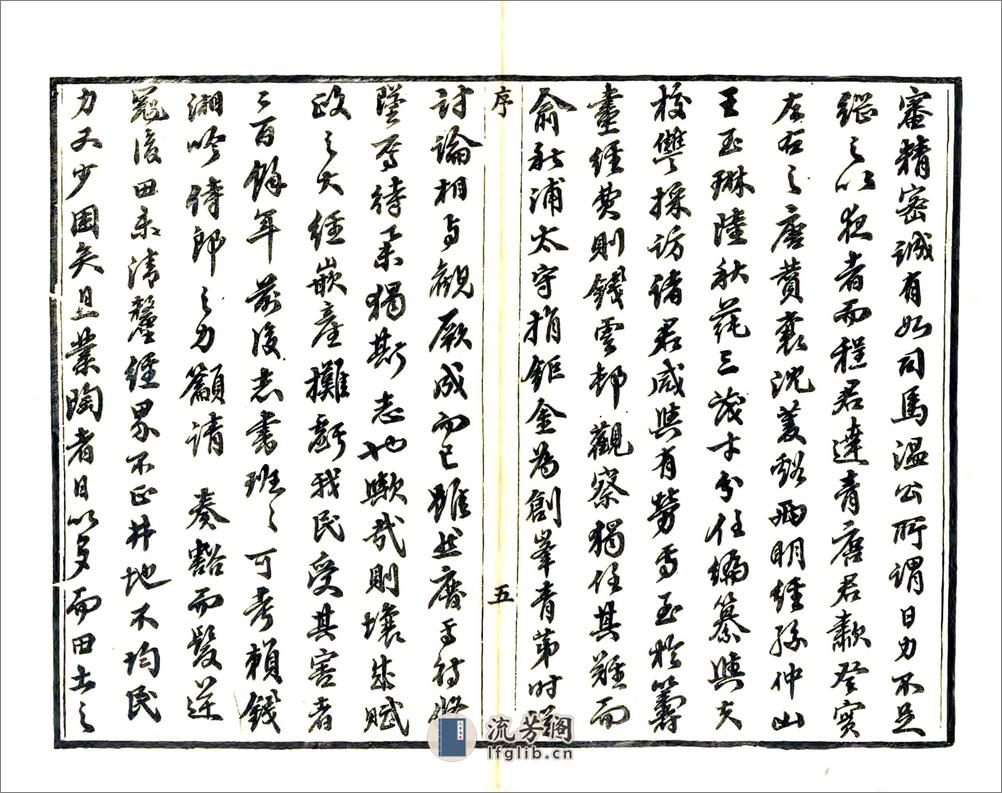 審精密誠有如司馬溫公所謂日力不足
繼之以夜者而程君達青唐君翰登實
左右之唐贊襄沈菱谿兩明經孫仲山
王玉琳陸秋茈三茂才分任編纂與夫
校讐採訪諸君咸與有勞焉至於籌
畫經費則錢雲邨觀察獨任其難而
俞秋浦太守捐鉅金為創峯青第時
序
五
討論相與觀厥成而已雖然廢焉待
墜焉待舉獨斯志也歟哉則壤成賦
政之大經嵌產攤虧我民受其害者
二百餘年前後志書班班可考賴錢
湘吟侍郎之力籲請 奏豁而髮逆
寇後田未清釐經界不正井地不均民
力又少困矣且業陶者日以多而田土之
流芳阁
lfglib.cn